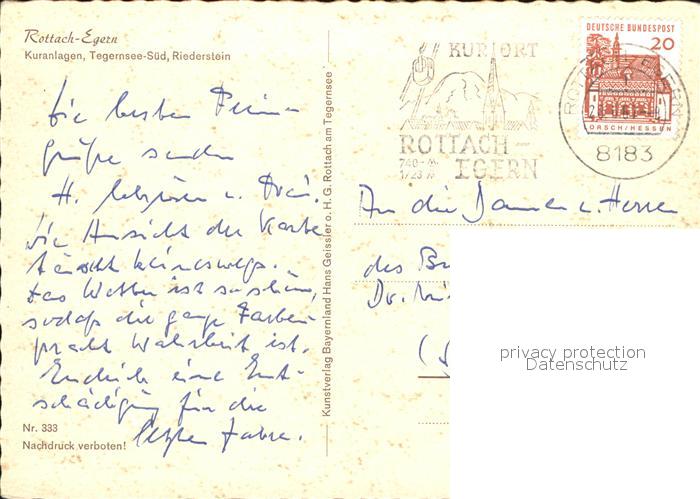 Rottach-Egern
Kuranlagen, Tegernsee-Süd, Riederstein
Die besten Ferien-
grüße senden
H. u. Frau.
Die Ansicht der Karte
täuscht keineswegs.
Das Wetter ist so schön,
sodaß die ganze Farben-
pracht Wahrheit ist.
Endlich eine Ent-
schädigung für die
letzten Jahre.
Nr. 333
Nachdruck verboten!
Kunstverlag Bayernland Hans Geissler o. H. G. Rottach am Tegernsee
KURORT
ROTTACH-
EGERN
740-
1723 M
DEUTSCHE BUNDESPOST
20
LORSCH/HESSEN
ROTTACH-EGERN
8183
An die Damen u. Herren
des
Dr.
privacy protection
Datenschutz